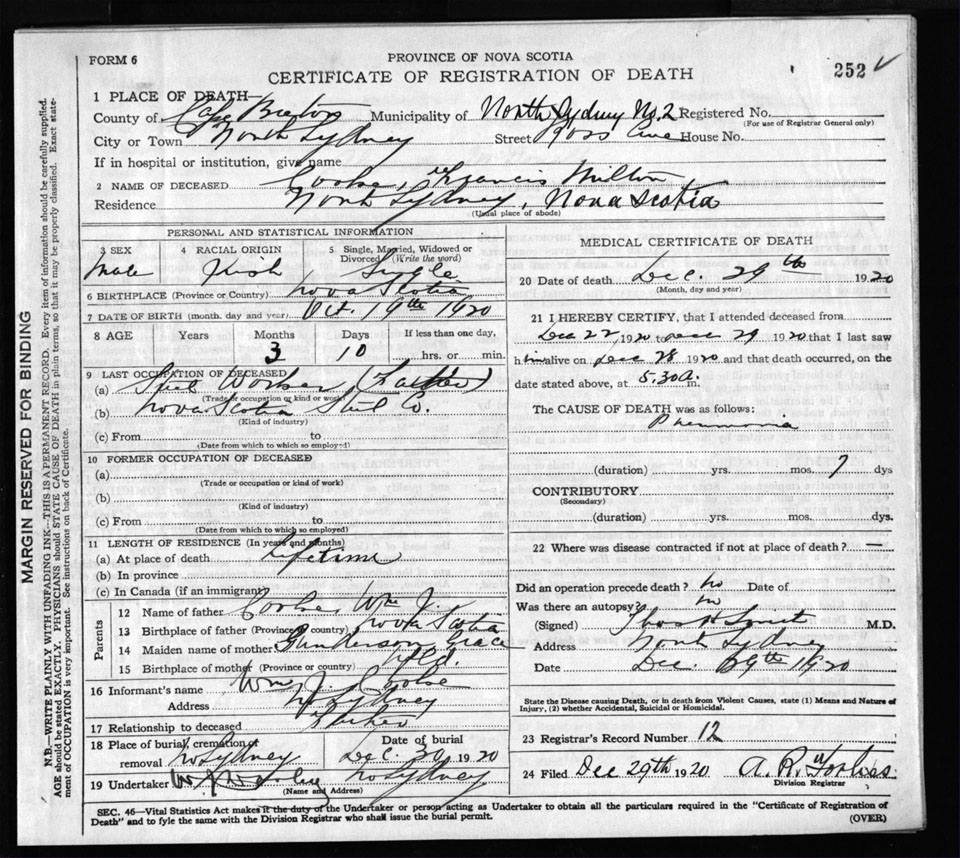 FORM 6
PROVINCE OF NOVA SCOTIA
CERTIFICATE OF REGISTRATION OF DEATH
252
MARGIN RESERVED FOR BINDING
N.B.—WRITE PLAINLY WITH UNFADING INK—THIS IS A PERMANENT RECORD. Every item of information should be carefully supplied.
AGE should be stated EXACTLY. PHYSICIANS should STATE CAUSE OF DEATH in plain terms, so that it may be properly classified. Exact state-
ment of OCCUPATION is very important. See instructions on back of Certificate.
1 PLACE OF DEATH—
County of Cape Breton Municipality of North Sydney No. 2 Registered No.
(For use of Registrar General only)
City or Town North Sydney Street Ross Ave House No.
If in hospital or institution, give name
2 NAME OF DECEASED Cooke, Francis Milton
Residence North Sydney, Nova Scotia
(Usual place of abode)
PERSONAL AND STATISTICAL INFORMATION
3 SEX Male
4 RACIAL ORIGIN Irish
5 Single, Married, Widowed or Divorced (Write the word) Single
6 BIRTHPLACE (Province or Country) Nova Scotia
7 DATE OF BIRTH (month, day and year) Oct. 19th 1920
8 AGE Years Months Days If less than one day,
3 10 hrs. or min.
9 LAST OCCUPATION OF DECEASED
(a) Steel Worker (Father)
(Trade or occupation or kind or work)
(b) Nova Scotia Steel Co.
(Kind of industry)
(c) From to
(Date from which to which so employed)
10 FORMER OCCUPATION OF DECEASED
(a)
(Trade or occupation or kind of work)
(b)
(Kind of industry)
(c) From to
(Date from which to which so employed)
11 LENGTH OF RESIDENCE (In years and months)
(a) At place of death lifetime
(b) In province
(c) In Canada (if an immigrant)
Parents
12 Name of father Cooke, Wm J.
13 Birthplace of father (Province or country) Nova Scotia
14 Maiden name of mother Grace
15 Birthplace of mother (Province or country) Nfld.
16 Informant's name Wm. J. Cooke
Address N. Sydney
17 Relationship to deceased Father
18 Place of burial, cremation or removal No Sydney Date of burial Dec. 30 1920
19 Undertaker No Sydney
(Name and Address)
MEDICAL CERTIFICATE OF DEATH
20 Date of death Dec. 29th 1920
(Month, day and year)
21 I HEREBY CERTIFY, that I attended deceased from
Dec 22, 1920 to Dec 29 1920 that I last saw
him alive on Dec 28 1920 and that death occurred, on the
date stated above, at 5.30 a. m.
The CAUSE OF DEATH was as follows:
Pneumonia
(duration) yrs. mos. 7 dys
CONTRIBUTORY
(Secondary)
(duration) yrs. mos. dys.
22 Where was disease contracted if not at place of death? —
Did an operation precede death? no Date of
Was there an autopsy? no
(Signed) M.D.
Address North Sydney
Date Dec. 29th 1920
State the Disease causing Death, or in death from Violent Causes, state (1) Means and Nature of
Injury, (2) whether Accidental, Suicidal or Homicidal.
23 Registrar's Record Number 12
24 Filed Dec 29th 1920 A. R. Forbes
Division Registrar
SEC. 46—Vital Statistics Act makes it the duty of the Undertaker or person acting as Undertaker to obtain all the particulars required in the "Certificate of Registration of
Death" and to fyle the same with the Division Registrar who shall issue the burial permit. (OVER)